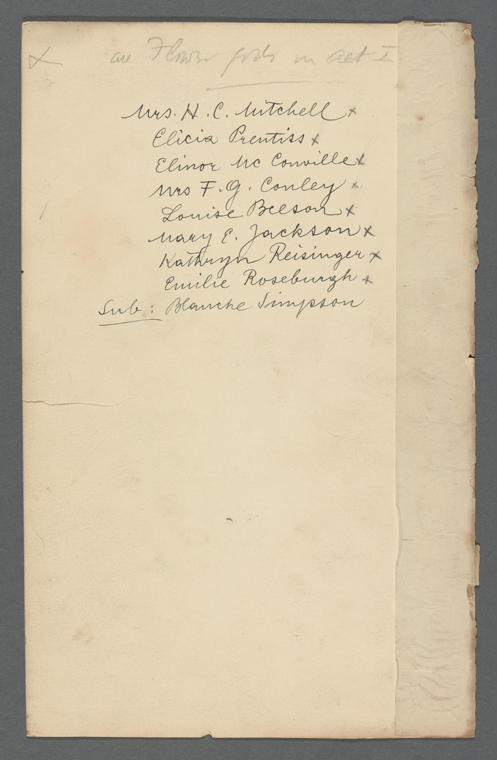 x are Flower gods in Act I
Mrs. H. C. Mitchell x
Elicia Prentiss x
Elinor Mc Conville x
Mrs F. G. Conley x
Louise Beeson x
Mary E. Jackson x
Kathryn Reisinger x
Emilie Roseburgh x
Sub: Blanche Simpson